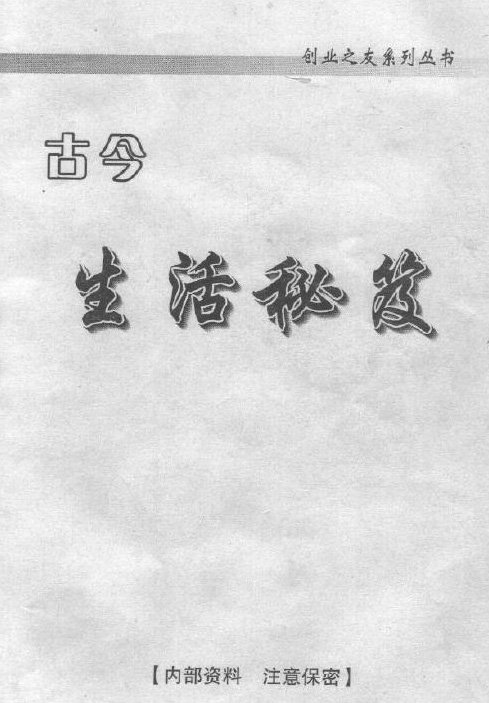 创业之友系列丛书
古今
生活秘笈
【内部资料 注意保密】